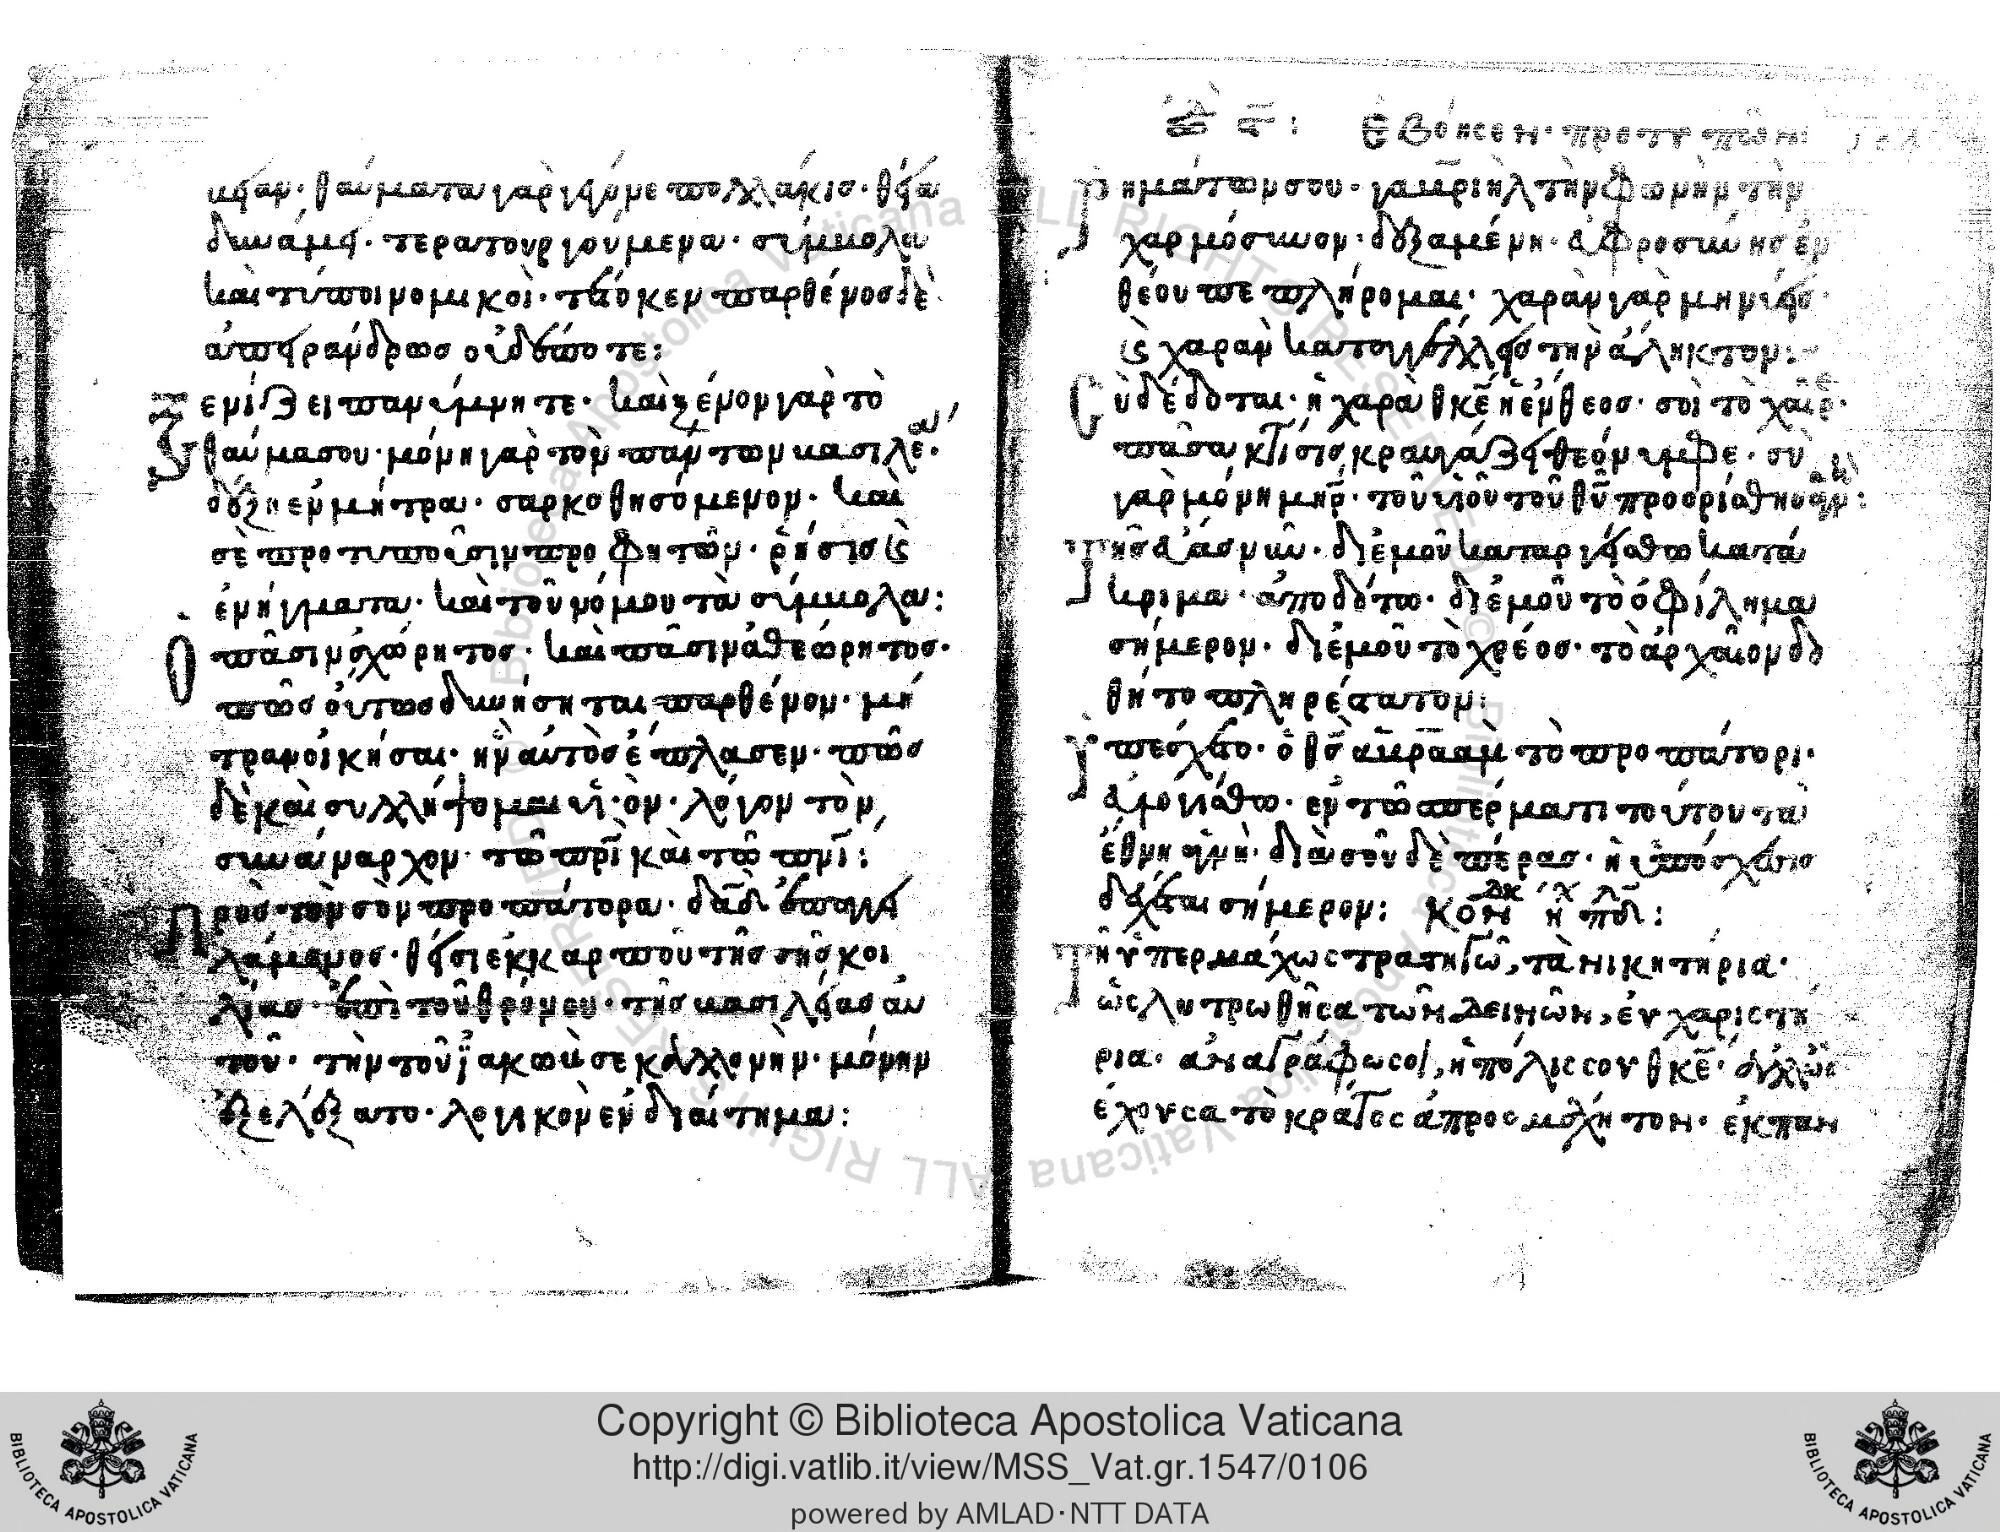 βείαν· θαύματα γὰρ γέγονε πολλάκις· θεία
δυνάμει· τερατουργούμενα· σύμβολα
καὶ τύποι νομικοὶ· τέτοκεν παρθένος δὲ
ἀπειράνδρως οὐδέποτε:
Ξενίζει πανύμνητε· καὶ ξένον γὰρ τὸ
θαύμα σου· μόνη γὰρ τὸν πάντων βασιλέα
δέξη ἐν μήτρα· σαρκοθησόμενον· καὶ
σὲ προτυποῦσιν προφητῶν· ρήσεις
ἐνήγματα· καὶ τοῦ νόμου τὰ σύμβολα:
Ὁ πᾶσιν ἀχώρητος· καὶ πᾶσιν ἀθεώρητος·
πῶς οὗτος δυνήσηται παρθένον· μή
τραν οἰκῆσαι· ἣν αὐτὸς ἔπλασεν· πῶς
δὲ καὶ συλλήψομαι υἱὸν· λόγον τὸν
συνάναρχον· τῶ πρὶ καὶ τῶ πνὶ:
Πρὸς τὸν σὸν προπάτορα· δαδ ἐπαγγει
λάμενος· θήσι ἐκ καρποῦ τῆς σῆς κοι
λίας· ἐπὶ τοῦ θρόνου· τῆς βασιλείας αὐ
τοῦ· τὴν τοῦ ϊακὼβ σε καλλονὴν· μόνην
ἐξελέξατο· λογικὸν ἐνδιαίτημα:
ἐβόησεν· προτυπῶν
Ῥημάτων σου· γαβριὴλ τὴν φωνὴν τὴν
χαρμόσυνον· δεξαμένη· εὐφροσύνης ἐν
θέου πεπλήρομαι· χαρὰν γὰρ μηνύεις·
καὶ χαρὰν καταγγέλλεις τὴν ἄληκτον:
Σοὶ δέδοται· ἡ χαρὰ θκε ἡ ἔνθεος· σοὶ τὸ χαῖρε·
πᾶσα κτίσις κραυγάζει θεόνυμφε· σὺ
γὰρ μόνη μηρ· τοῦ υἱοῦ τοῦ θυ προορίσθης ἁγνή:
Τῆς εὔας νῦν· δι ἐμοῦ καταργείσθω κατά
κριμα· ἀποδότω· δι ἐμοῦ τὸ ὀφίλημα
σήμερον· δι ἐμοῦ τὸ χρέος· τὸ ἀρχαῖον δο
θήτο πληρέστατον:
Ὑπέσχετο· ὁ θς ἀβρααμ τὸ προπάτορι·
εὐλογεῖσθω· ἐν τῶ σπέρματι τούτου τὰ
ἔθνη ἁγνὴ· διὰ σοῦ δὲ πέρας· ἡ ὑπόσχεσις
δέχεται σήμερον:
Τῆ ὑπερμάχω στρατηγῶ, τὰ νικητήρια·
ὡς λυτρωθῆσα τῶν δεινῶν, εὐχαριστή
ρια· ἀναγράφω σοι, ἡ πόλις σου θκε· ἀλλ ὡς
ἔχουσα τὸ κράτος ἀπροσμάχητον· ἐκ παν
Copyright © Biblioteca Apostolica Vaticana
http://digi.vatlib.it/view/MSS_Vat.gr.1547/0106
powered by AMLAD·NTT DATA
BIBLIOTECA APOSTOLICA VATICANA
BIBLIOTECA APOSTOLICA VATICANA